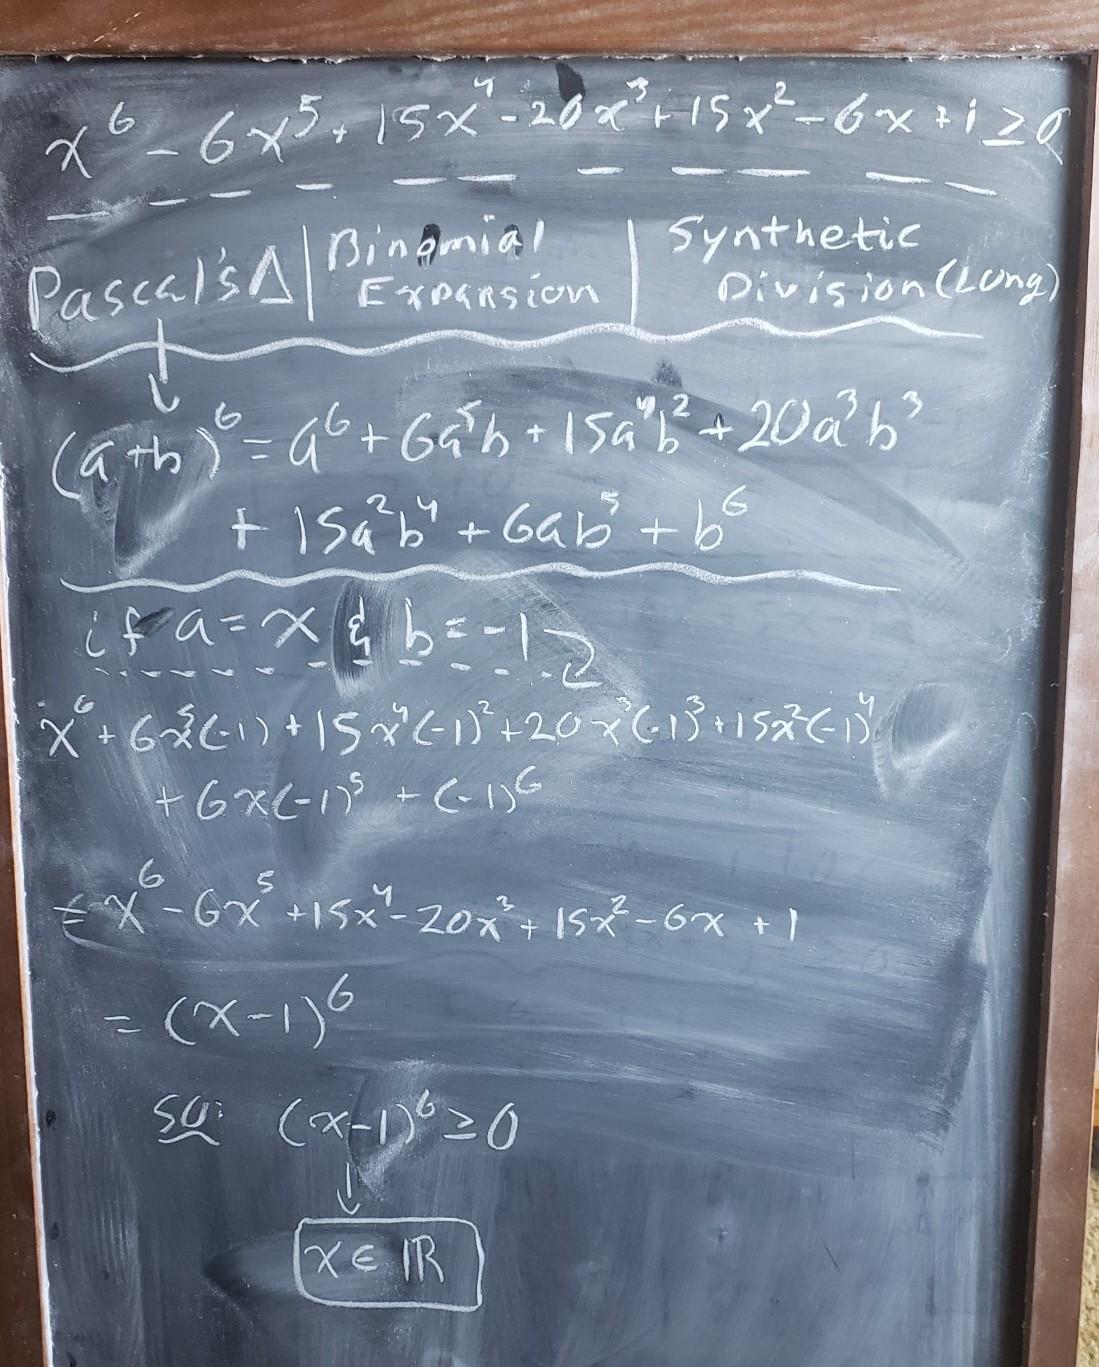 x⁶ - 6x⁵ + 15x⁴ - 20x³ + 15x² - 6x + 1 ≥ 0
Pascal's Δ | Binomial Expansion | Synthetic Division (Long)
(a+b)⁶ = a⁶ + 6a⁵b + 15a⁴b² + 20a³b³
+ 15a²b⁴ + 6ab⁵ + b⁶
if a = x & b = -1
x⁶ + 6x⁵(-1) + 15x⁴(-1)² + 20x³(-1)³ + 15x²(-1)⁴
+ 6x(-1)⁵ + (-1)⁶
= x⁶ - 6x⁵ + 15x⁴ - 20x³ + 15x² - 6x + 1
= (x-1)⁶
so: (x-1)⁶ ≥ 0
x ∈ ℝ